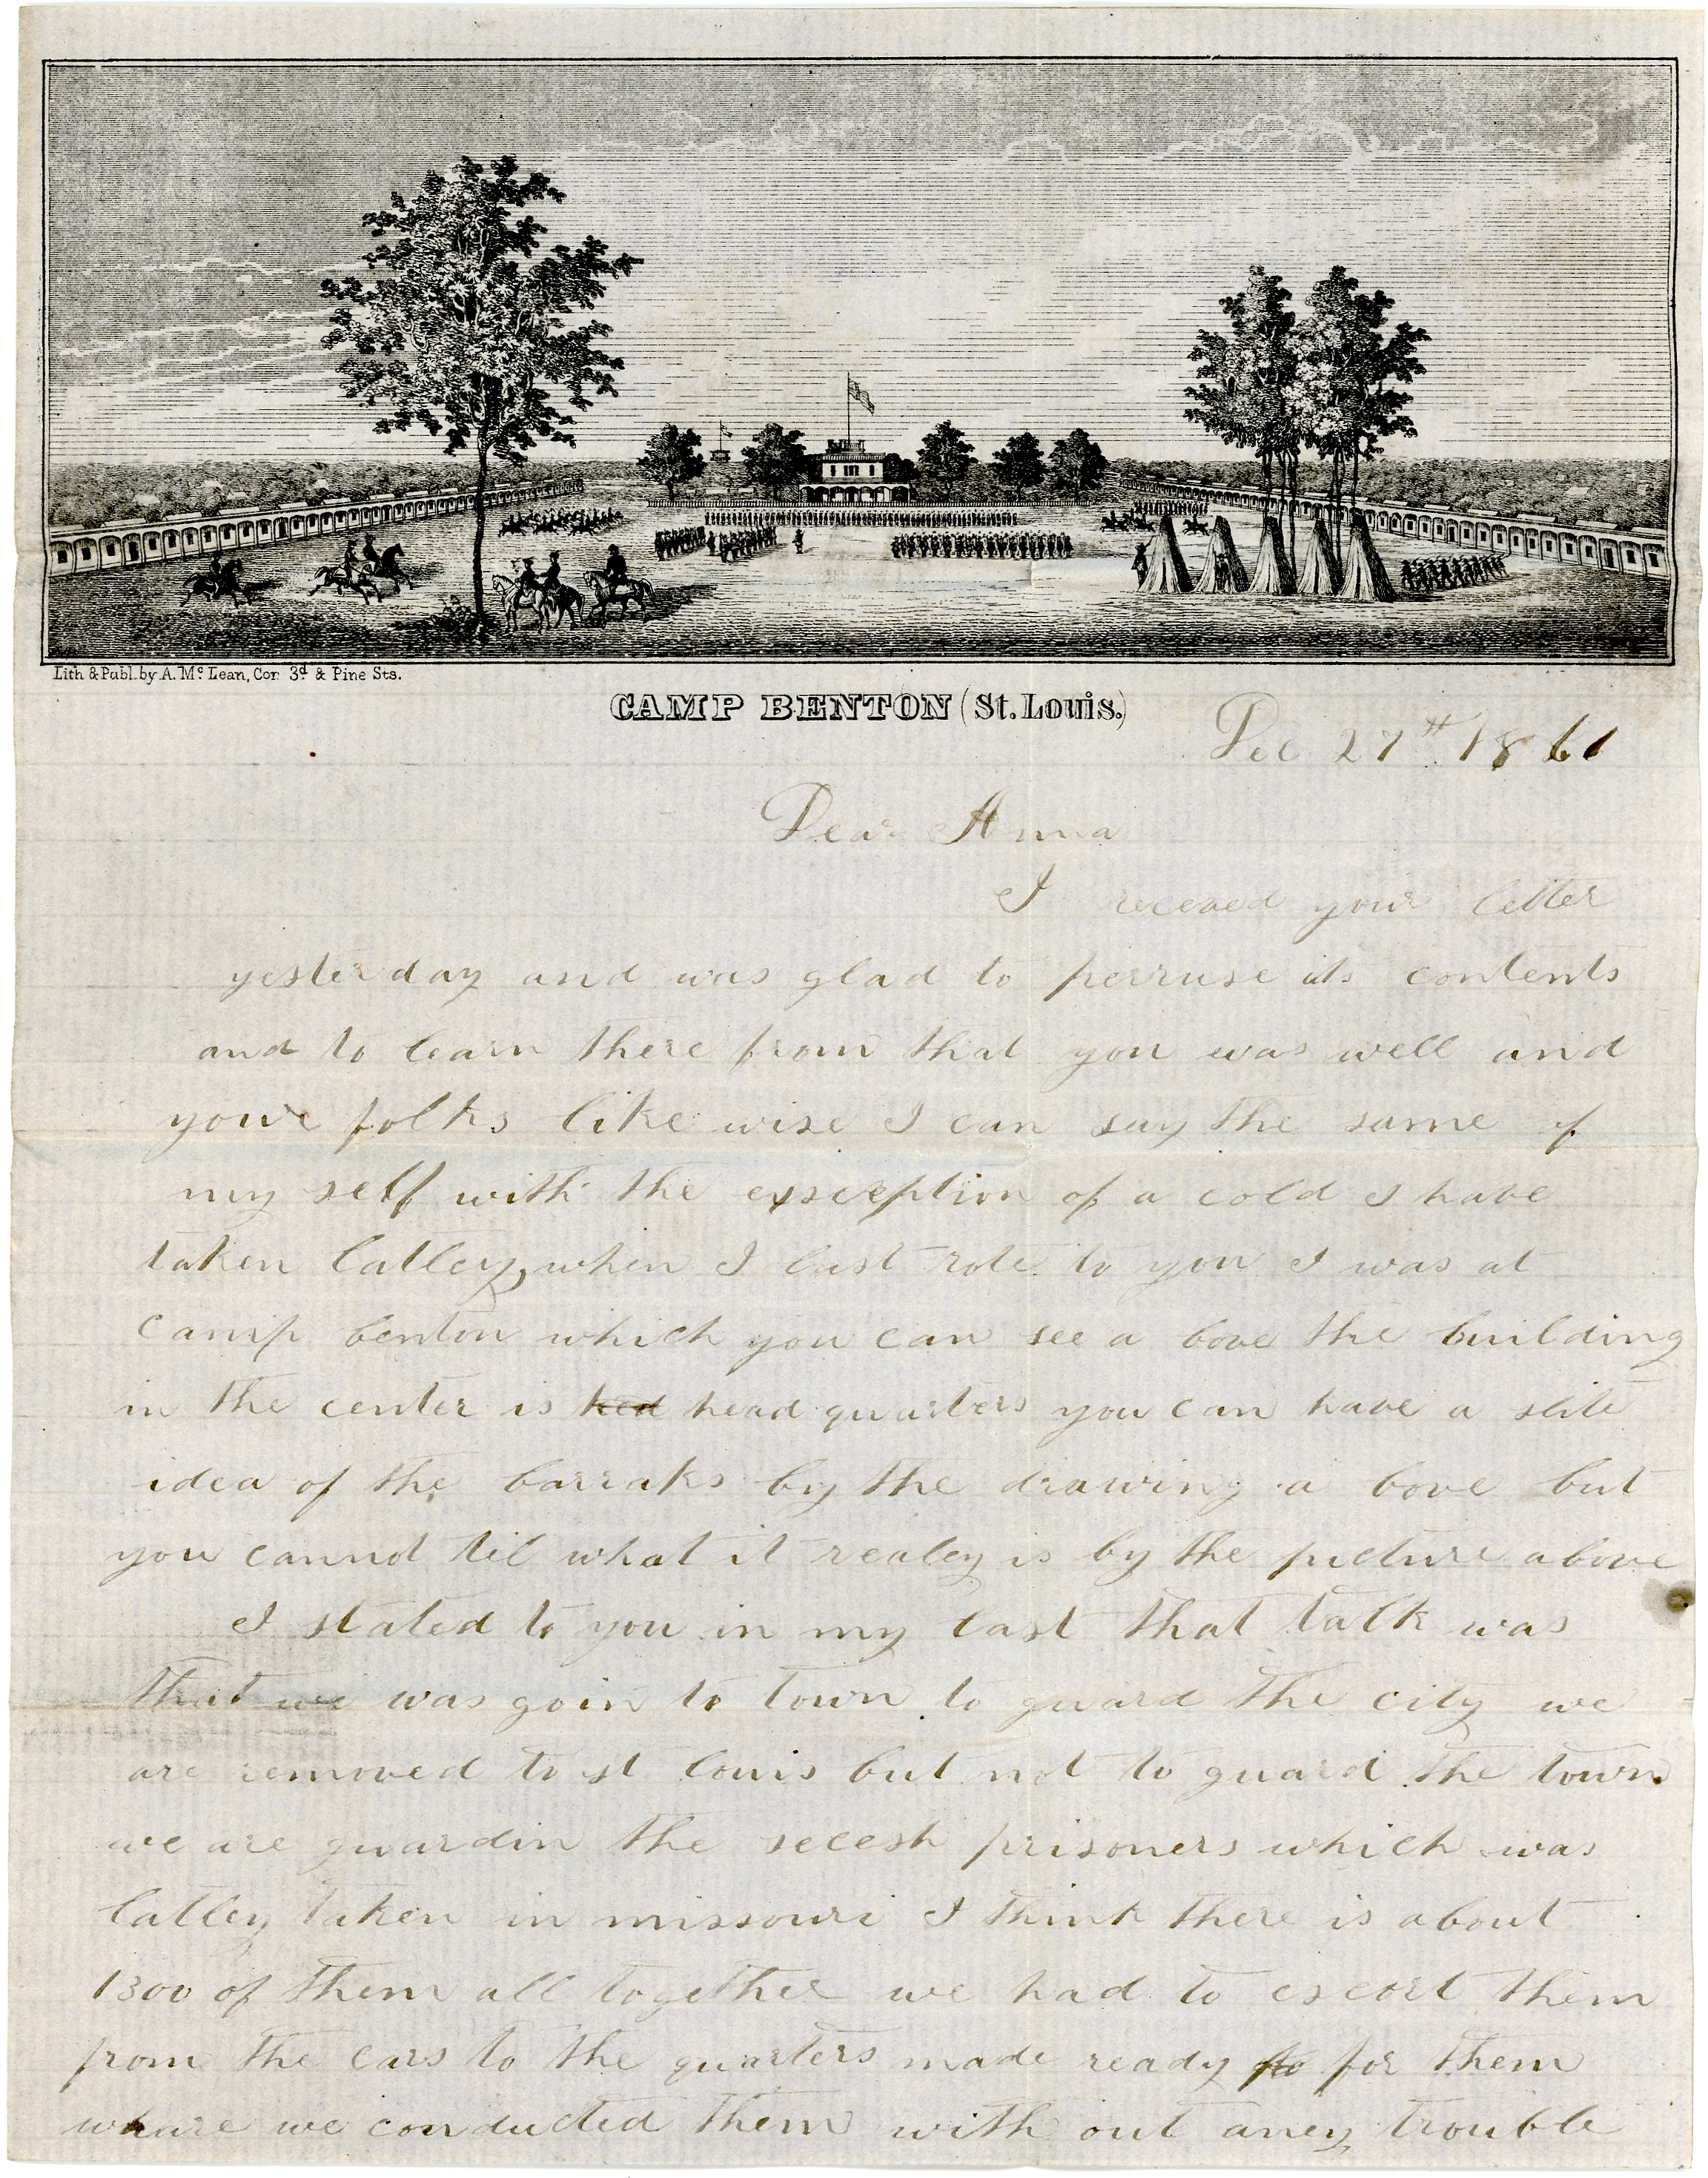 Lith & Publ. by A. Mc Lean, Cor. 3d & Pine Sts.
CAMP BENTON (St. Louis.)
Dec 27th 1861
Dear Anna
I receved your letter
yesterday and was glad to perruse its contents
and to learn there from that you was well and
youre folks like wise I can say the same of
my self with the exsception of a cold I have
taken Latley, when I last rote to you I was at
Camp benton which you can see a bove the building
in the center is hed head quarters you can have a slite
idea of the barraks by the drawing a bove but
you cannot tel what it realey is by the picture above
I stated to you in my last that talk was
that we was goin to town to guard the city we
are removed to st Louis but not to guard the town
we are guardin the secesh prisoners which was
latley taken in missouri I think there is about
1300 of them all together we had to escort them
from the cars to the quarters made ready fo for them
whare we conducted them with out aney trouble